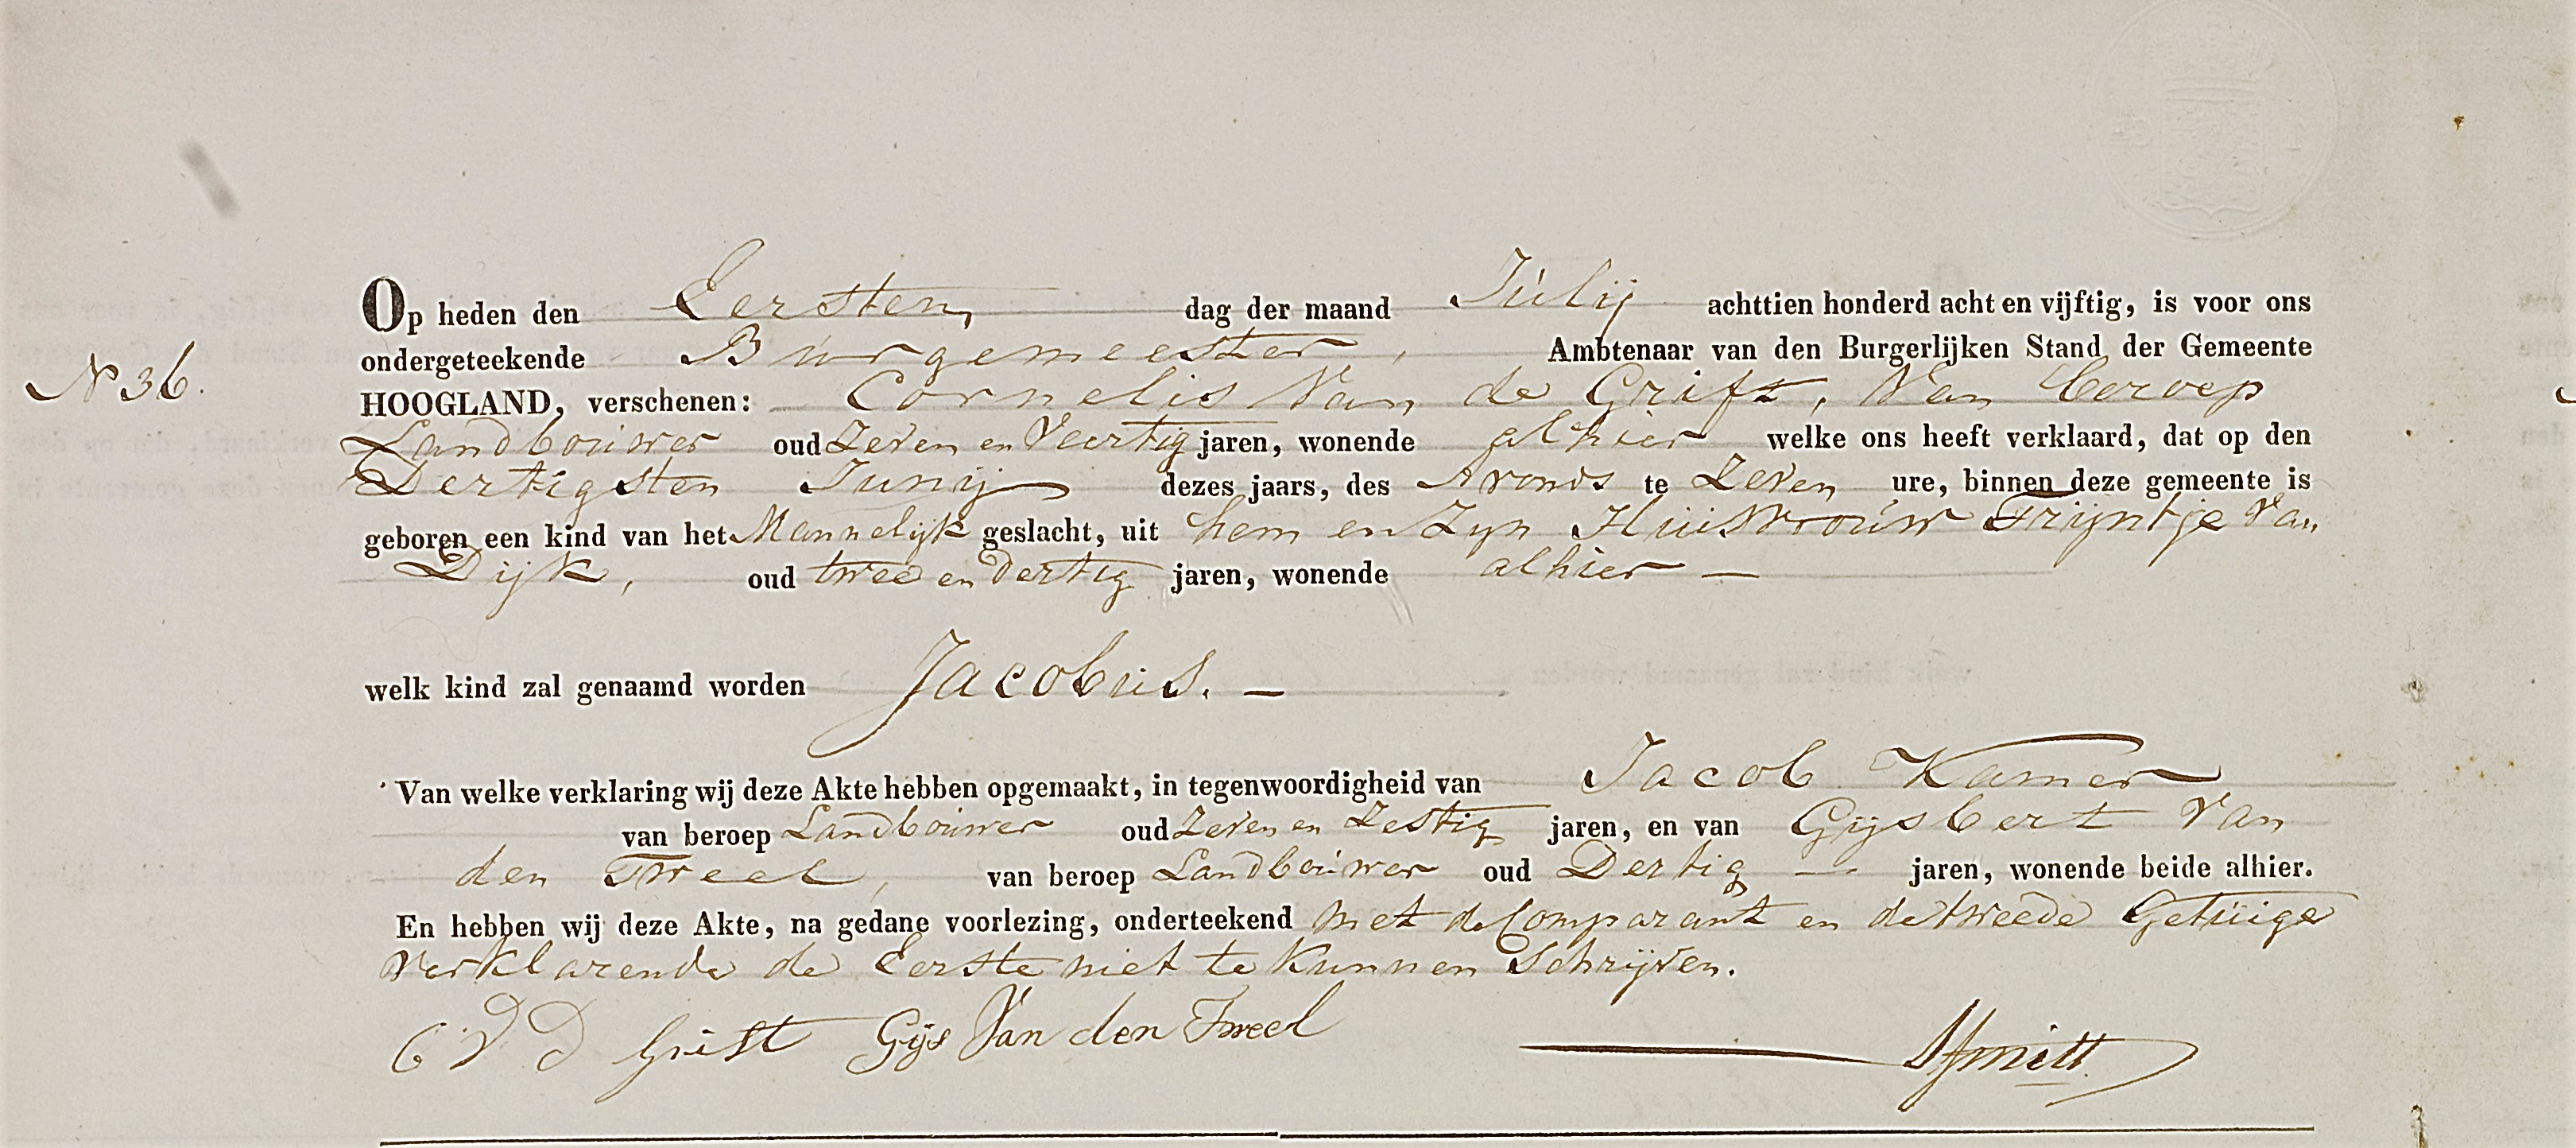 Op heden den Eersten, dag der maand Júlij achttien honderd acht en vijftig, is voor ons
ondergeteekende Búrgemeester, Ambtenaar van den Burgerlijken Stand der Gemeente
N 36. HOOGLAND, verschenen: Cornelis Van de Grift, Van beroep
Landboúwer oud Zeven en Veertig jaren, wonende alhier welke ons heeft verklaard, dat op den
Dertigsten Junij dezes jaars, des Avonds te Zeven ure, binnen deze gemeente is
geboren een kind van het Mannelijk geslacht, uit hem en Zyn Húisvroúw Trijntje Van
Dijk, oud twee en Dertig jaren, wonende alhier —
welk kind zal genaamd worden Jacobús. —
Van welke verklaring wij deze Akte hebben opgemaakt, in tegenwoordigheid van Jacob Kamer
van beroep Landboúwer oud Zeven en Zestig jaren, en van Gijsbert Van
den Tweel, van beroep Landboúwer oud Dertig — jaren, wonende beide alhier.
En hebben wij deze Akte, na gedane voorlezing, onderteekend met de Comparant en de tweede Getúige
Verklarende de Eerste niet te Kunnen Schrijven.
C V D Grift Gijs Van den Tweel Smitt